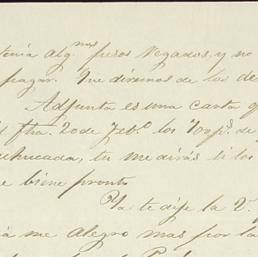 tenia alg.nas pesos Negados, y no
pagar. Que diremos de las de
Adjunta es una carta q
fha. 20 de Feb.o los 100 p.s de
tu me dirás si los
e bien pronto
Ya te dije la 2.
ia me alegro mas por la